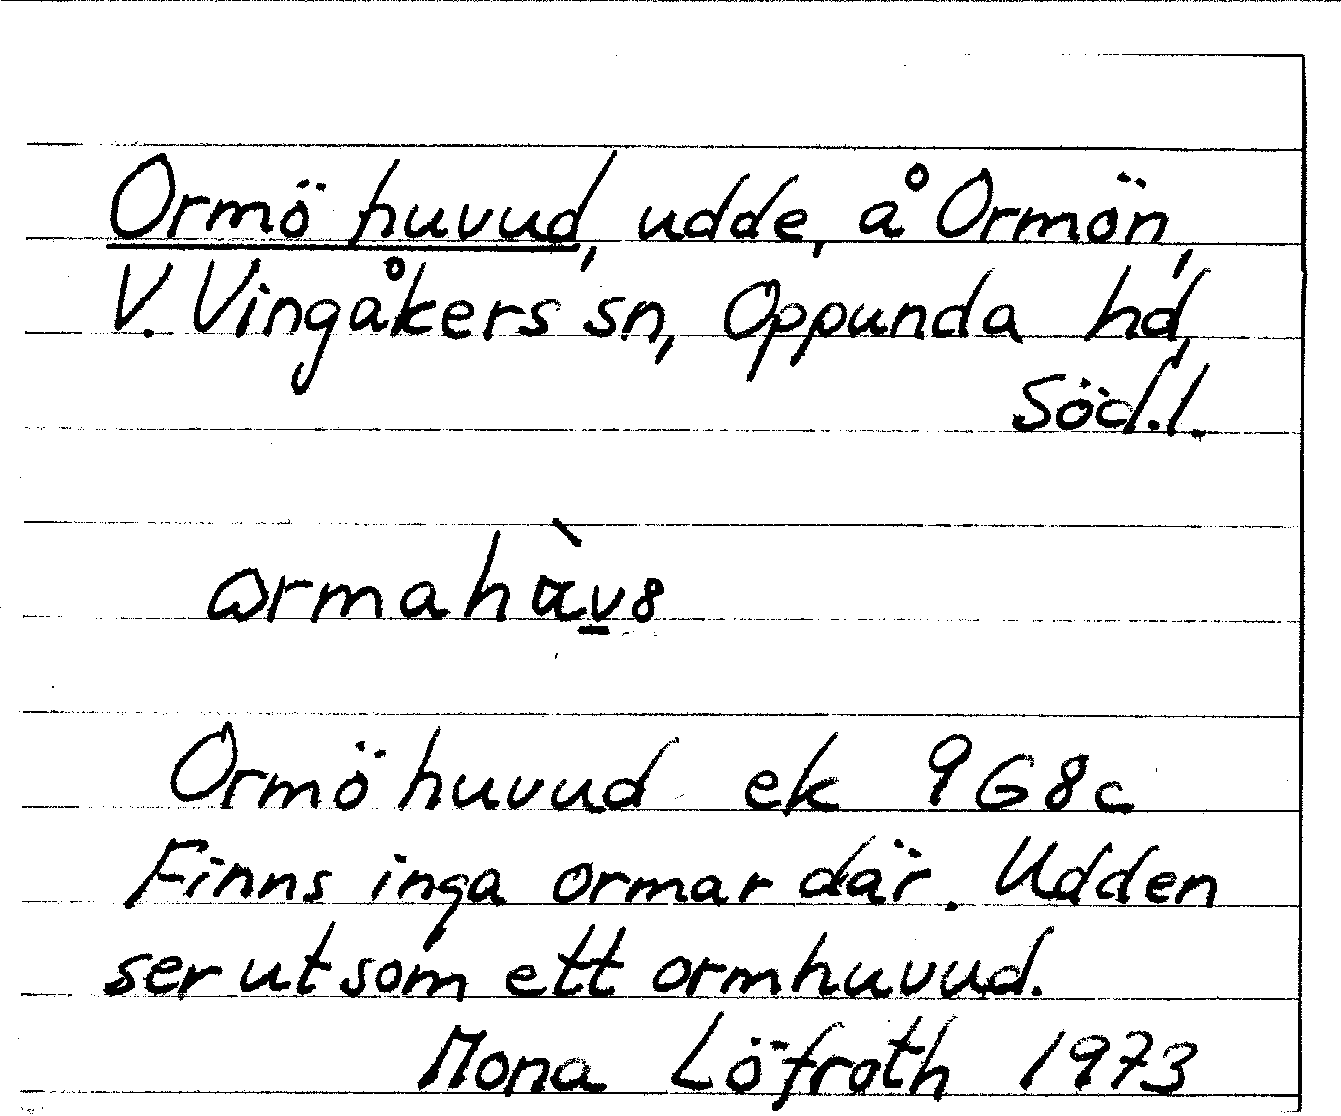 Ormö huvud, udde, å Ormön,
V. Vingåkers sn, Oppunda hd,
Söd.l.
ormahàv8
Ormö huvud ek 9G8c
Finns inga ormar där. Udden
ser ut som ett ormhuvud.
Mona Löfroth 1973